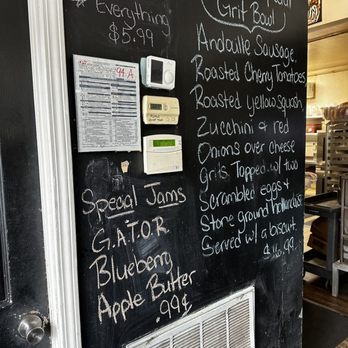 Everything
$5.99
94 A
Special Jams
G.A.T.O.R.
Blueberry
Apple Butter
.99¢
Grit Bowl
Andouille Sausage,
Roasted Cherry Tomatoes
Roasted yellow Squash
Zucchini & red
Onions over cheese
grits. Topped w/ two
Scrambled eggs &
Stone ground hollandaise
Served w/ a biscuit.
$16.99